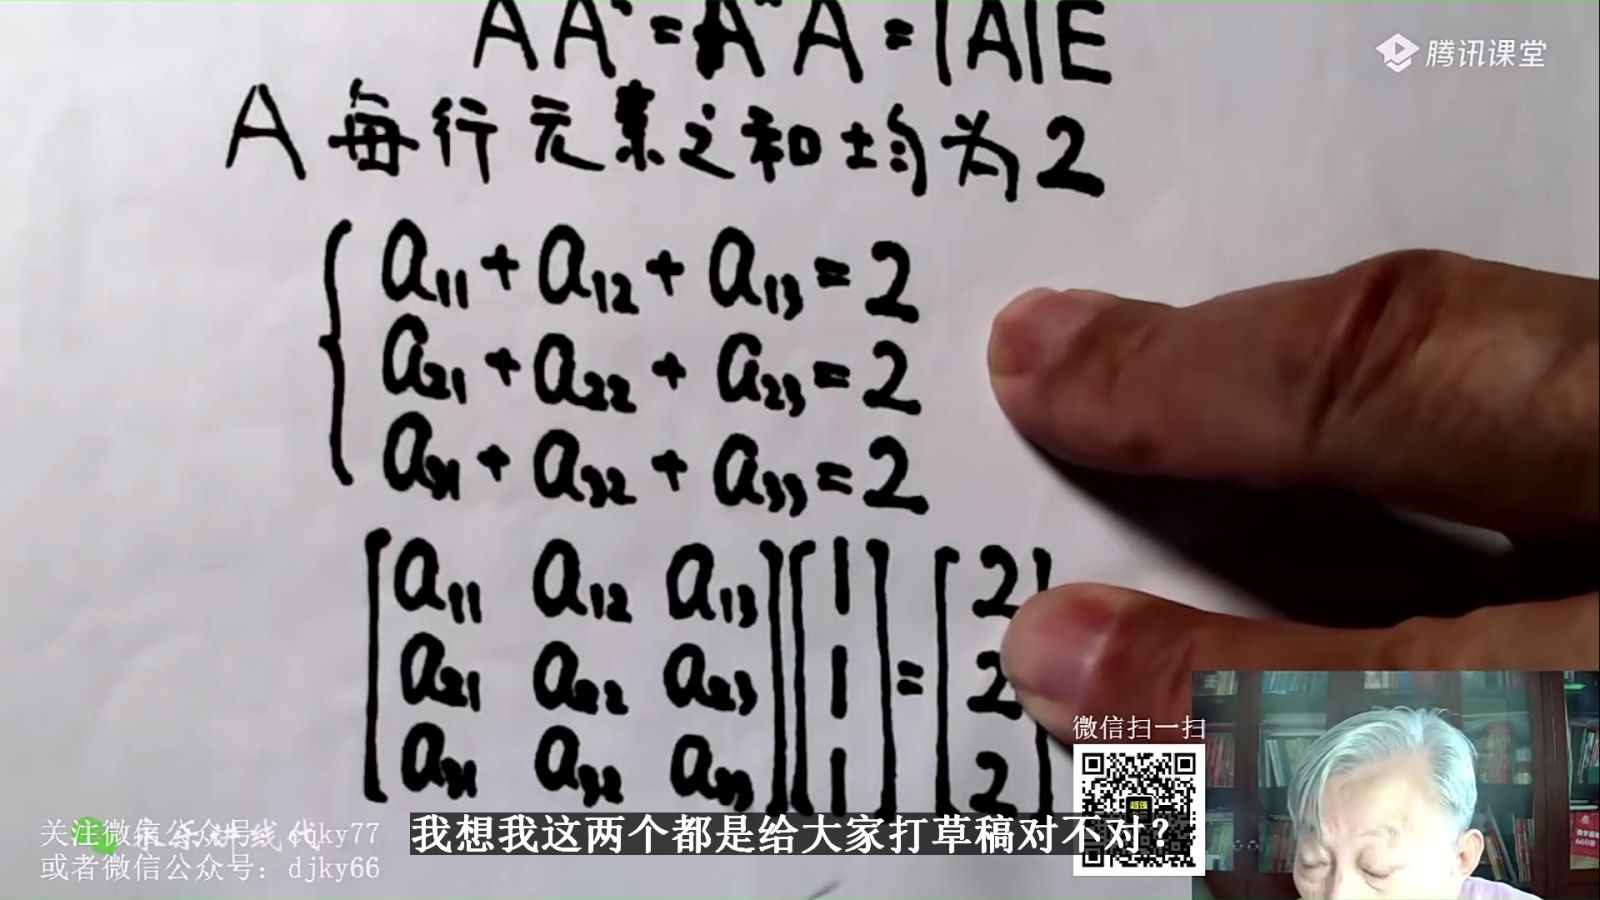 AA* = A*A = |A|E
腾讯课堂
A 每行元素之和均为2
a₁₁ + a₁₂ + a₁₃ = 2
a₂₁ + a₂₂ + a₂₃ = 2
a₃₁ + a₃₂ + a₃₃ = 2
a₁₁ a₁₂ a₁₃ 1 2
a₂₁ a₂₂ a₂₃ 1 = 2
a₃₁ a₃₂ a₃₃ 1 2
微信扫一扫
超强
关注微信公众号：djky77
讲线代
或者微信公众号：djky66
我想我这两个都是给大家打草稿对不对？